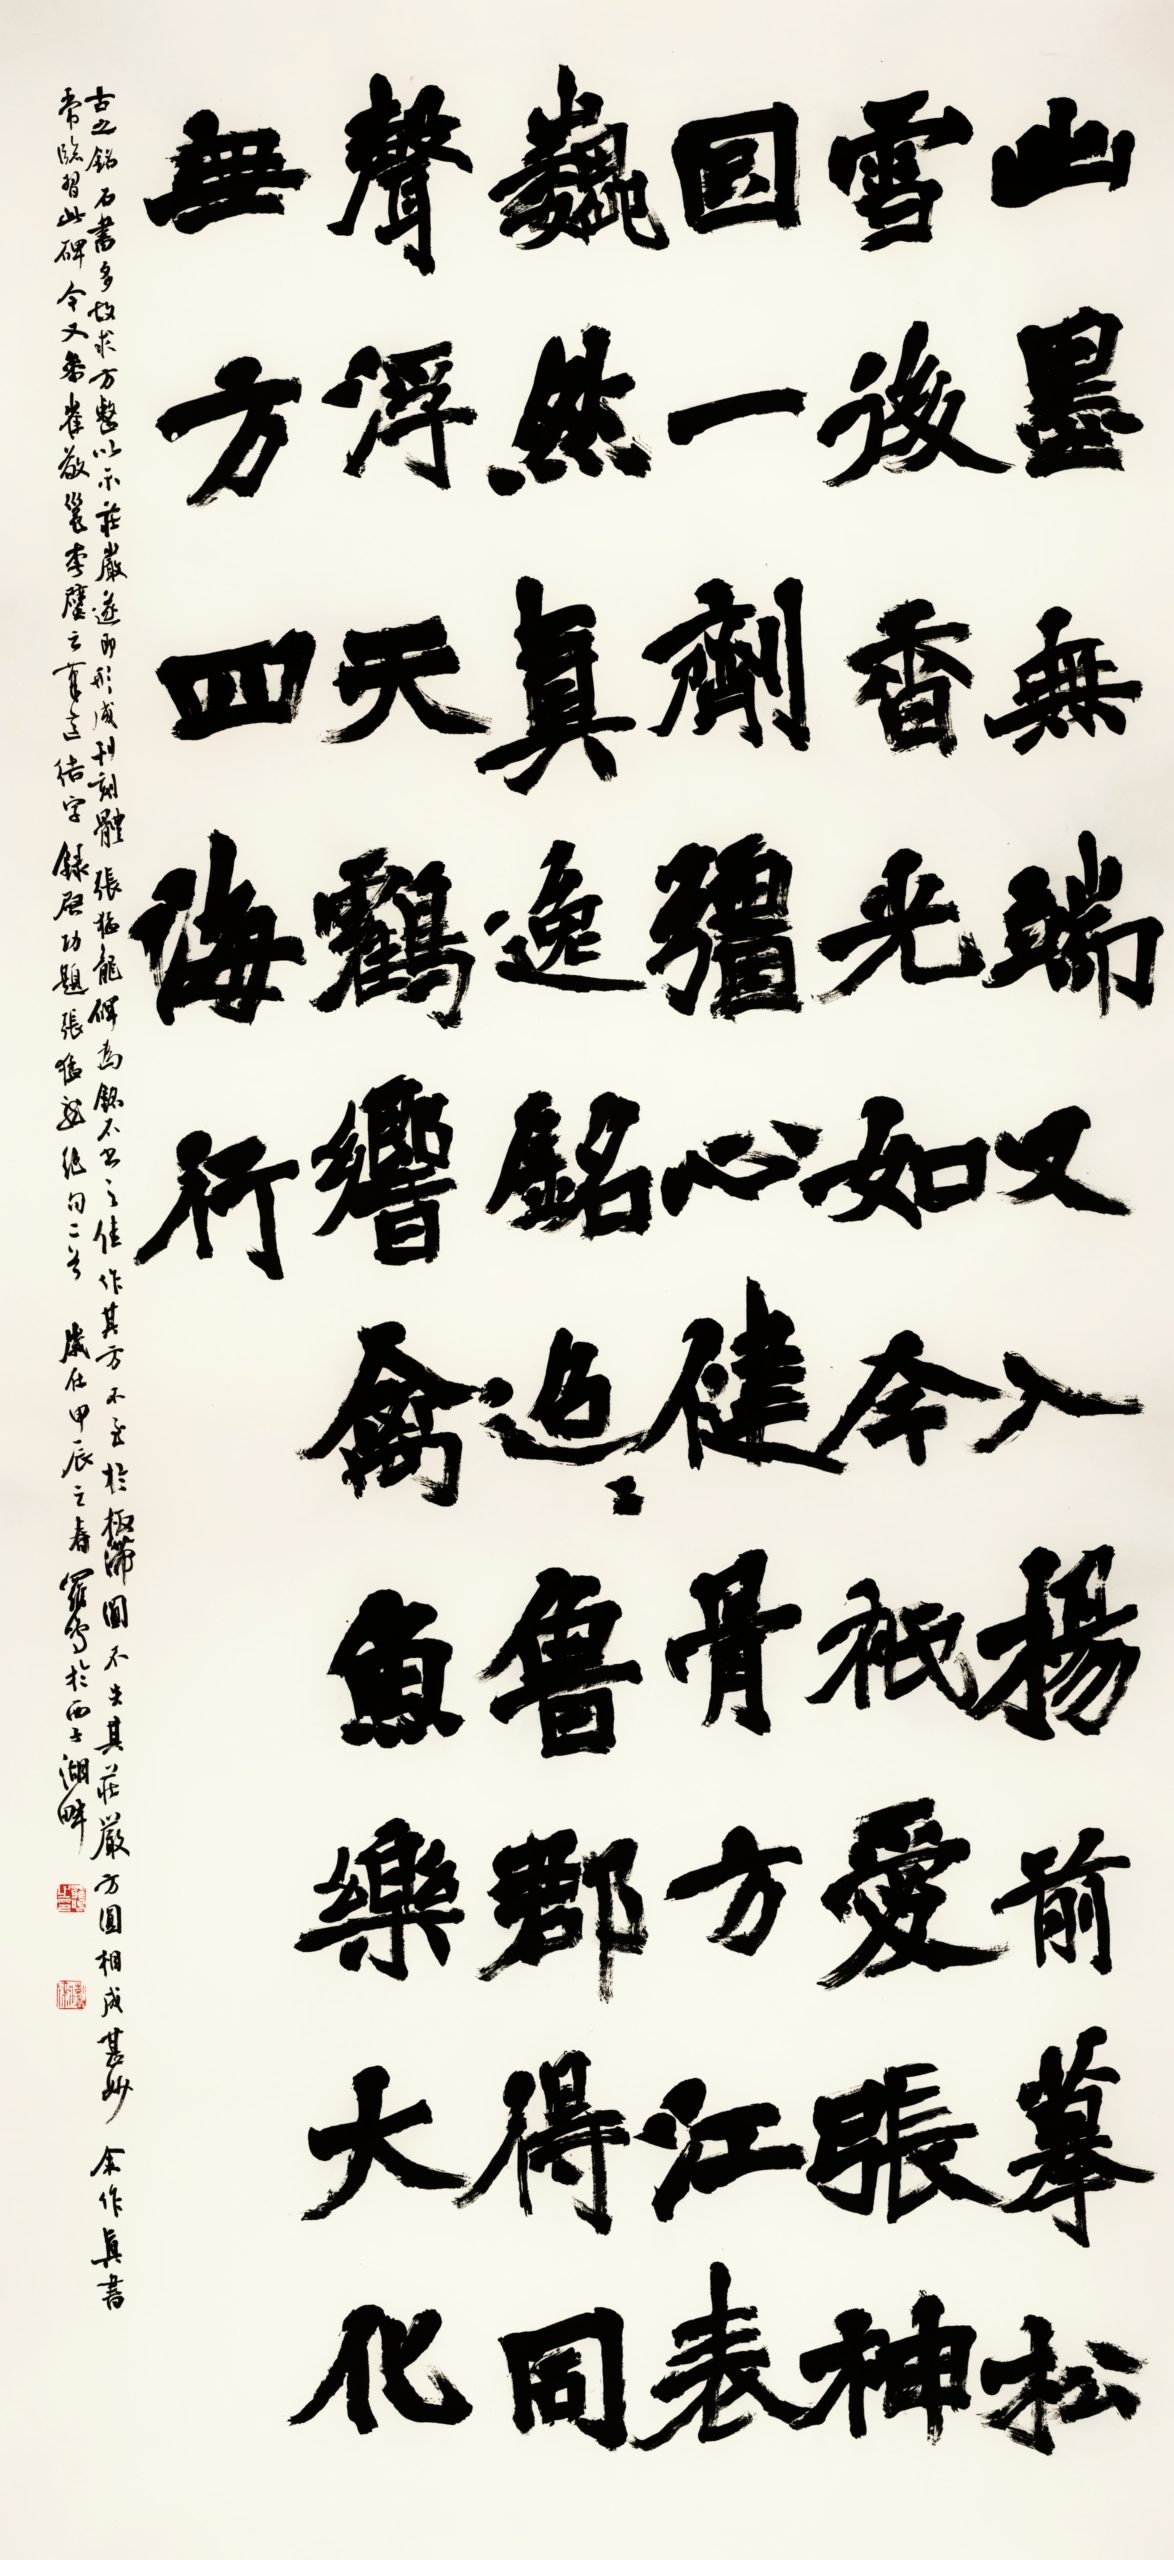 出墨無端又入楊前摹松
雪後香光如今衹愛張神
冏一劑彊心健骨方江表
巍然真逸銘迢〻魯郡得同
聲浮天鸖響禽魚樂大化
無方四海行
古之銘石書多故求方整以示莊嚴遂即形成刊刻體張猛龍碑為銘石書之佳作其方不至於板滯圓不失其莊嚴方圓相成甚妙余作真書
常臨習此碑今又參崔敬邕李璧之筆意結字錄啟功題張猛龍絕句二首歲在甲辰之春羅於西子湖畔